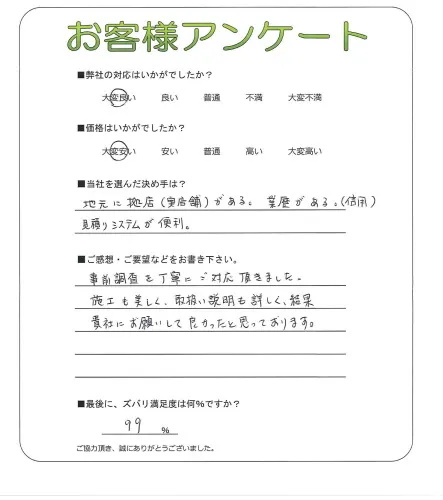 お客様アンケート
■弊社の対応はいかがでしたか？
大変良い 良い 普通 不満 大変不満
■価格はいかがでしたか？
大変安い 安い 普通 高い 大変高い
■当社を選んだ決め手は？
地元に拠点(実店舗)がある。業歴がある。(信用)
見積りシステムが便利。
■ご感想・ご要望などをお書き下さい。
事前調査を丁寧にご対応頂きました。
施工も美しく、取扱い説明も詳しく、結果
貴社にお願いして良かったと思っております。
■最後に、ズバリ満足度は何%ですか？
99 %
ご協力頂き、誠にありがとうございました。